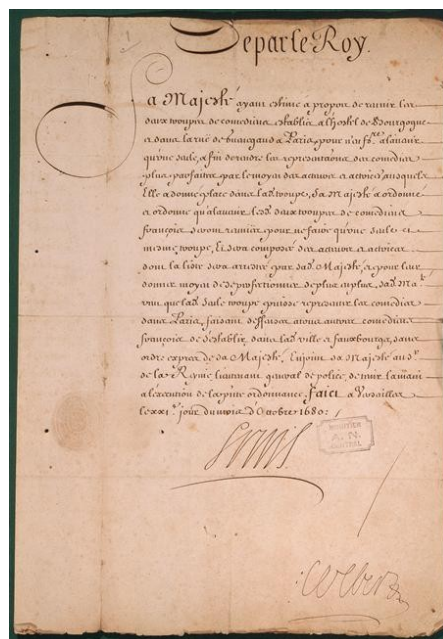 De par le Roy.
Sa Majesté ayant estimé a propos de reunir les
deux troupes de comediens establis a l'hostel de Bourgogne
et dans la rue de Guenegaud a Paris, pour n'en f.re a l'avenir
qu'une seule, afin de rendre les representaōns des comedies
plus parfaites par le moyen des acteurs et actrices ausquels
Elle a donné place dans lad. troupe, Sa Majesté a ordonné
et ordonne qu'a l'avenir lesd. deux troupes de comediens
françois seront reunies pour ne faire qu'une seule et
mesme troupe, Et sera composée des acteurs et actrices
dont la liste sera arrestée par sad. Majesté, et pour leur
donner moyen de se perfectionner de plus en plus, sad. Ma.té
veut que lad. seule troupe puisse representer les comedies
dans Paris, faisant deffenses a tous autres comediens
françois de s'establir dans lad. ville et fauxbourgs, sans
ordre expres de Sa Majesté. Enjoint Sa Majesté au S.r
de la Reynie lieutenant general de police, de tenir la main
a l'execution de la p.nte ordonnance. Faict a Versailles
le xxi.e jour du mois d'Octobre 1680.
Louis
A. N.
Colbert